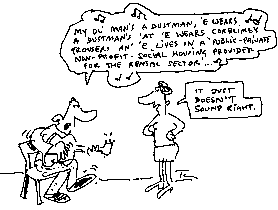 MY OL' MAN'S A DUSTMAN, 'E WEARS
A DUSTMAN'S 'AT 'E WEARS CORBLIMEY
TROUSERS AN' 'E LIVES IN A 'PUBLIC-PRIVATE
NON-PROFIT-SOCIAL HOUSING PROVIDER
FOR THE RENTAL SECTOR'...
IT JUST
DOESN'T
SOUND RIGHT.